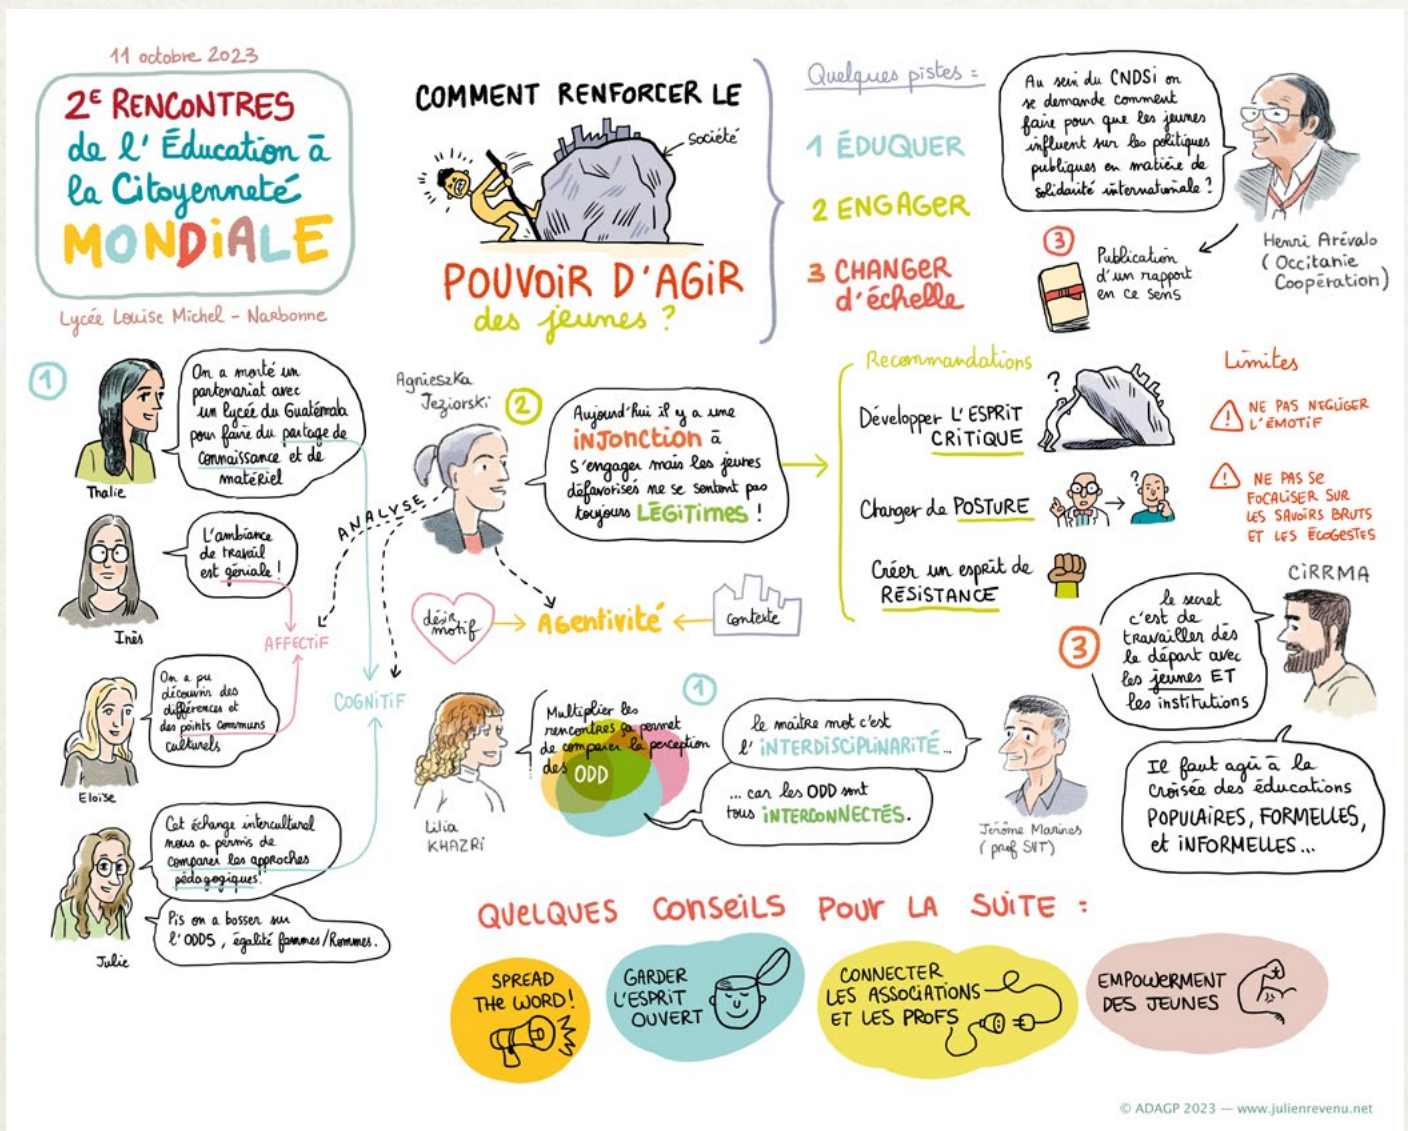 11 octobre 2023
2E RENCONTRES
de l'Éducation à
la Citoyenneté
MONDIALE
Lycée Louise Michel - Narbonne
COMMENT RENFORCER LE
société
POUVOIR D'AGIR
des jeunes ?
Quelques pistes :
1 ÉDUQUER
2 ENGAGER
3 CHANGER
d'échelle
Au sein du CNDSi on
se demande comment
faire pour que les jeunes
influent sur les politiques
publiques en matière de
solidarité internationale ?
Henri Arévalo
(Occitanie
Coopération)
3
Publication
d'un rapport
en ce sens
1
On a monté un
partenariat avec
un lycée du Guatémala
pour faire du partage de
connaissance et de
matériel
Thalie
L'ambiance
de travail
est géniale !
Inès
AFFECTIF
On a pu
découvrir des
différences et
des points communs
culturels
Eloïse
COGNITIF
Cet échange interculturel
nous a permis de
comparer les approches
pédagogiques !
Pis on a bosser sur
l'ODD5, égalité femmes/Hommes.
Julie
Agnieszka
Jeziorski
2
Aujourd'hui il y a une
INJONCTION à
s'engager mais les jeunes
défavorisés ne se sentent pas
toujours LÉGITIMES !
ANALYSE
désir
motif
AGENTIVITÉ
contexte
Recommandations
Développer L'ESPRIT
CRITIQUE
?
Changer de POSTURE
?
Créer un esprit de
RÉSISTANCE
Limites
! NE PAS NEGLIGER
L'ÉMOTIF
! NE PAS SE
FOCALISER SUR
LES SAVOIRS BRUTS
ET LES ÉCOGESTES
CIRRMA
3
le secret
c'est de
travailler dès
le départ avec
les jeunes ET
les institutions
Il faut agir à la
croisée des éducations
POPULAIRES, FORMELLES,
et INFORMELLES...
1
Multiplier les
rencontres ça permet
de comparer la perception
des ODD
Lilia
KHAZRI
le maître mot c'est
l'INTERDISCIPLINARITÉ...
... car les ODD sont
tous INTERCONNECTÉS.
Jérôme Marines
(prof SVT)
QUELQUES CONSEILS POUR LA SUITE :
SPREAD
THE WORD !
GARDER
L'ESPRIT
OUVERT
CONNECTER
LES ASSOCIATIONS
ET LES PROFS
EMPOWERMENT
DES JEUNES
© ADAGP 2023 — www.julienrevenu.net